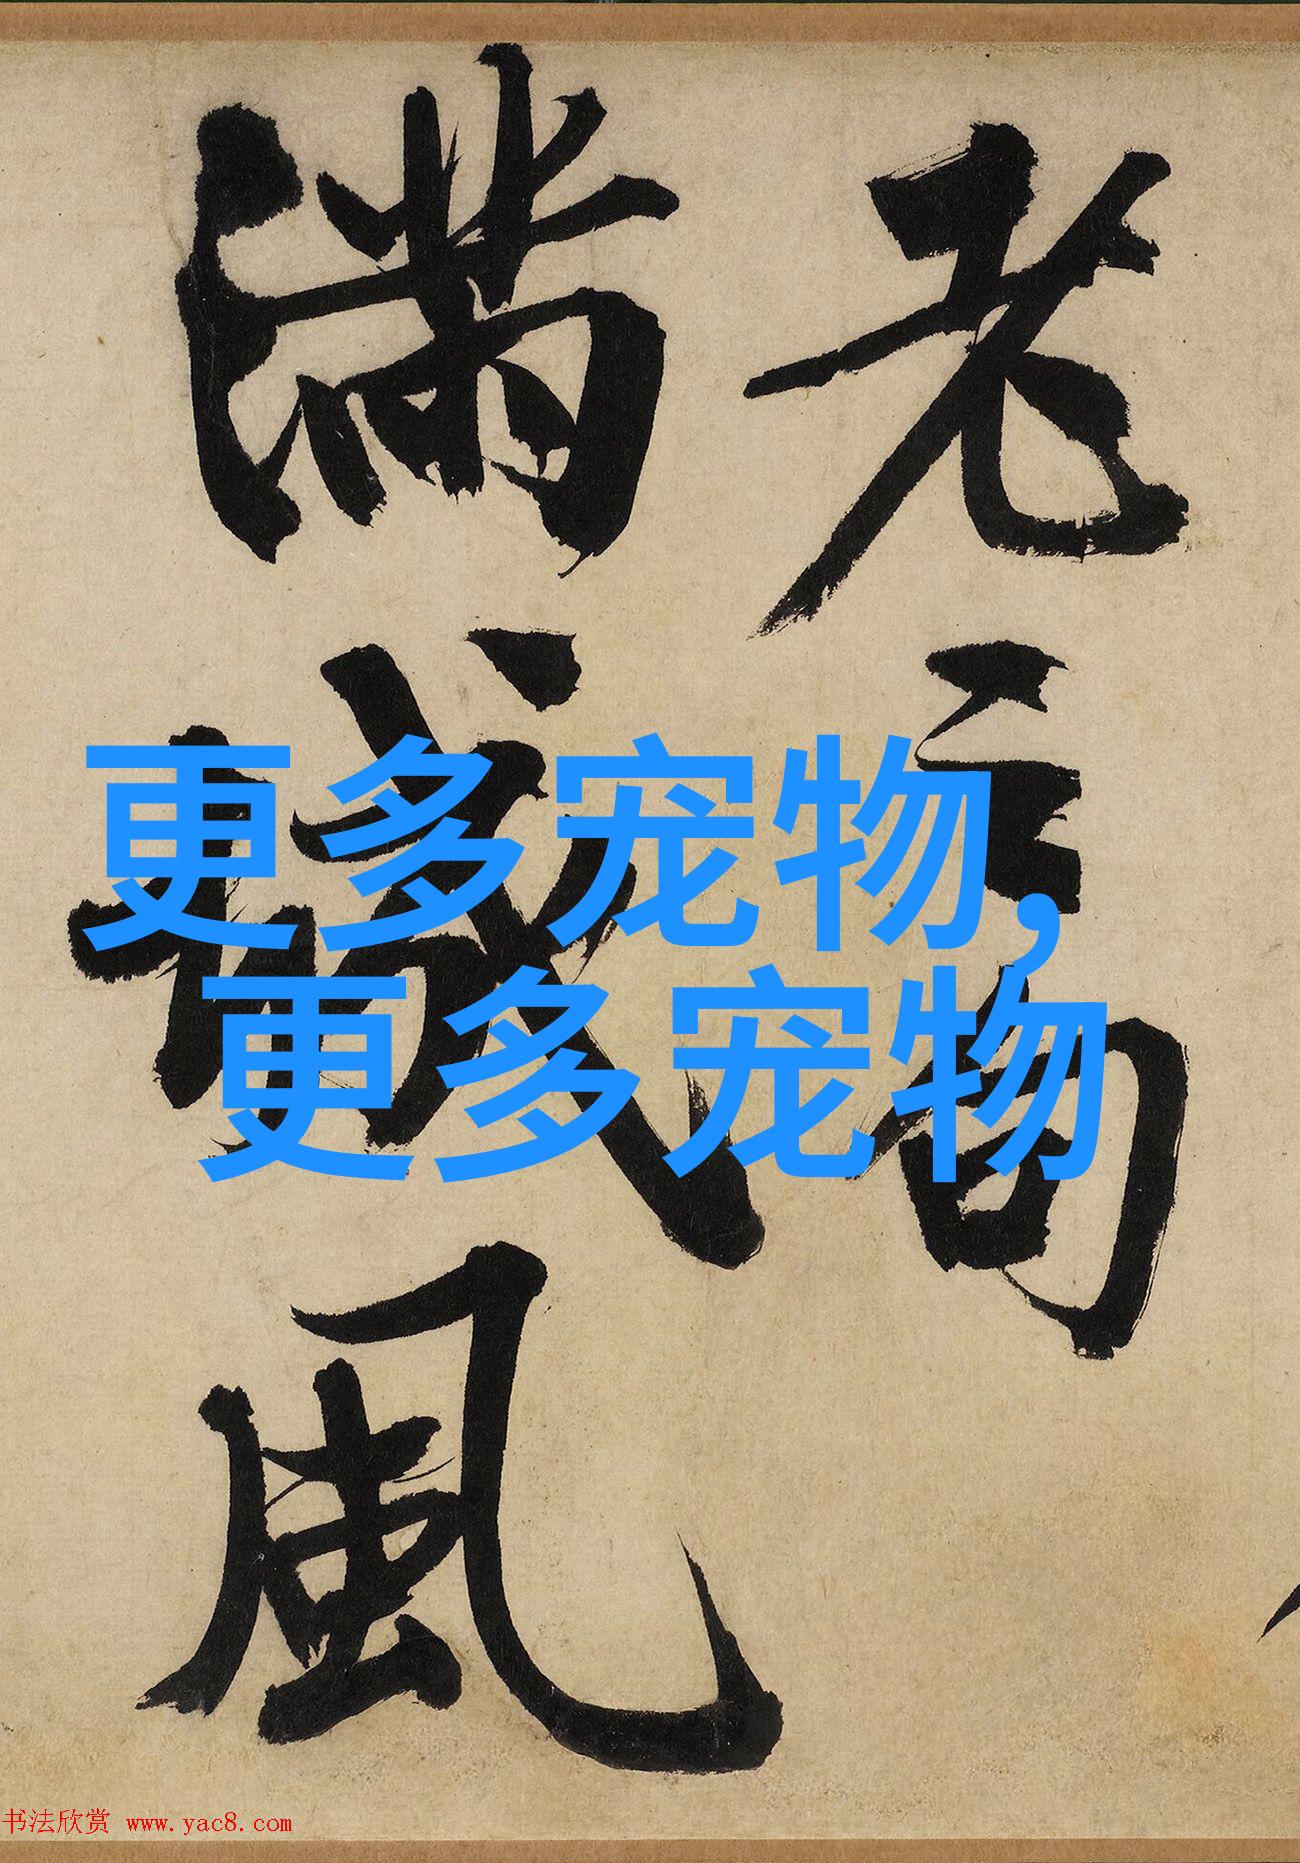 老言句
满城风
更多宠物,
更多宠物
书法欣赏 www.yac8.com